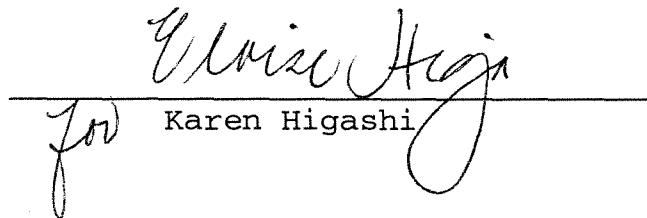 Eloise Higa
for Karen Higashi